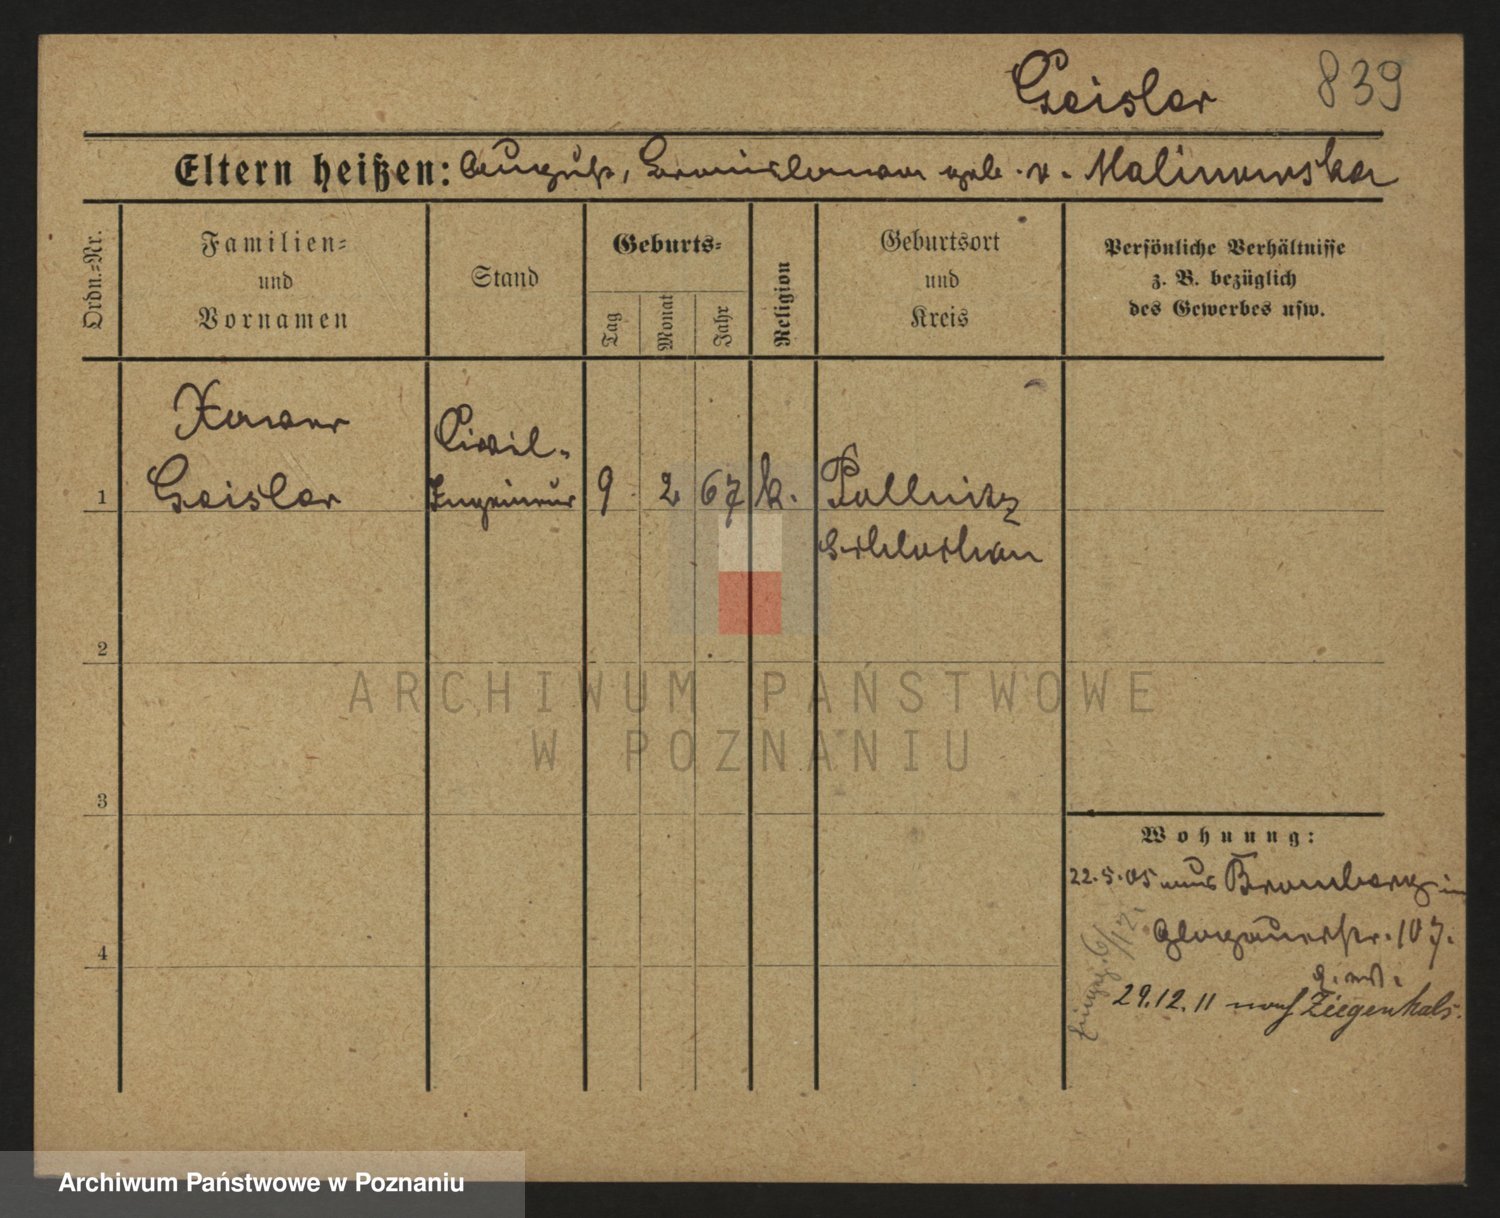 Geisler 839
Eltern heißen: August, Bronislawa geb. v. Malinowska
Ordn.-Nr.
Familien-
und
Vornamen
Stand
Geburts-
Tag
Monat
Jahr
Religion
Geburtsort
und
Kreis
Persönliche Verhältnisse
z. B. bezüglich
des Gewerbes usw.
Xaver
Civil-
1 Geisler Ingenieur 9. 2 67 k. Pollnitz
Schlochau
2
3
4
Wohnung:
22.5.05 aus Bromberg in
Glogauerstr. 107.
29.12.11 nach Ziegenhals.
ARCHIWUM PAŃSTWOWE
W POZNANIU
Archiwum Państwowe w Poznaniu